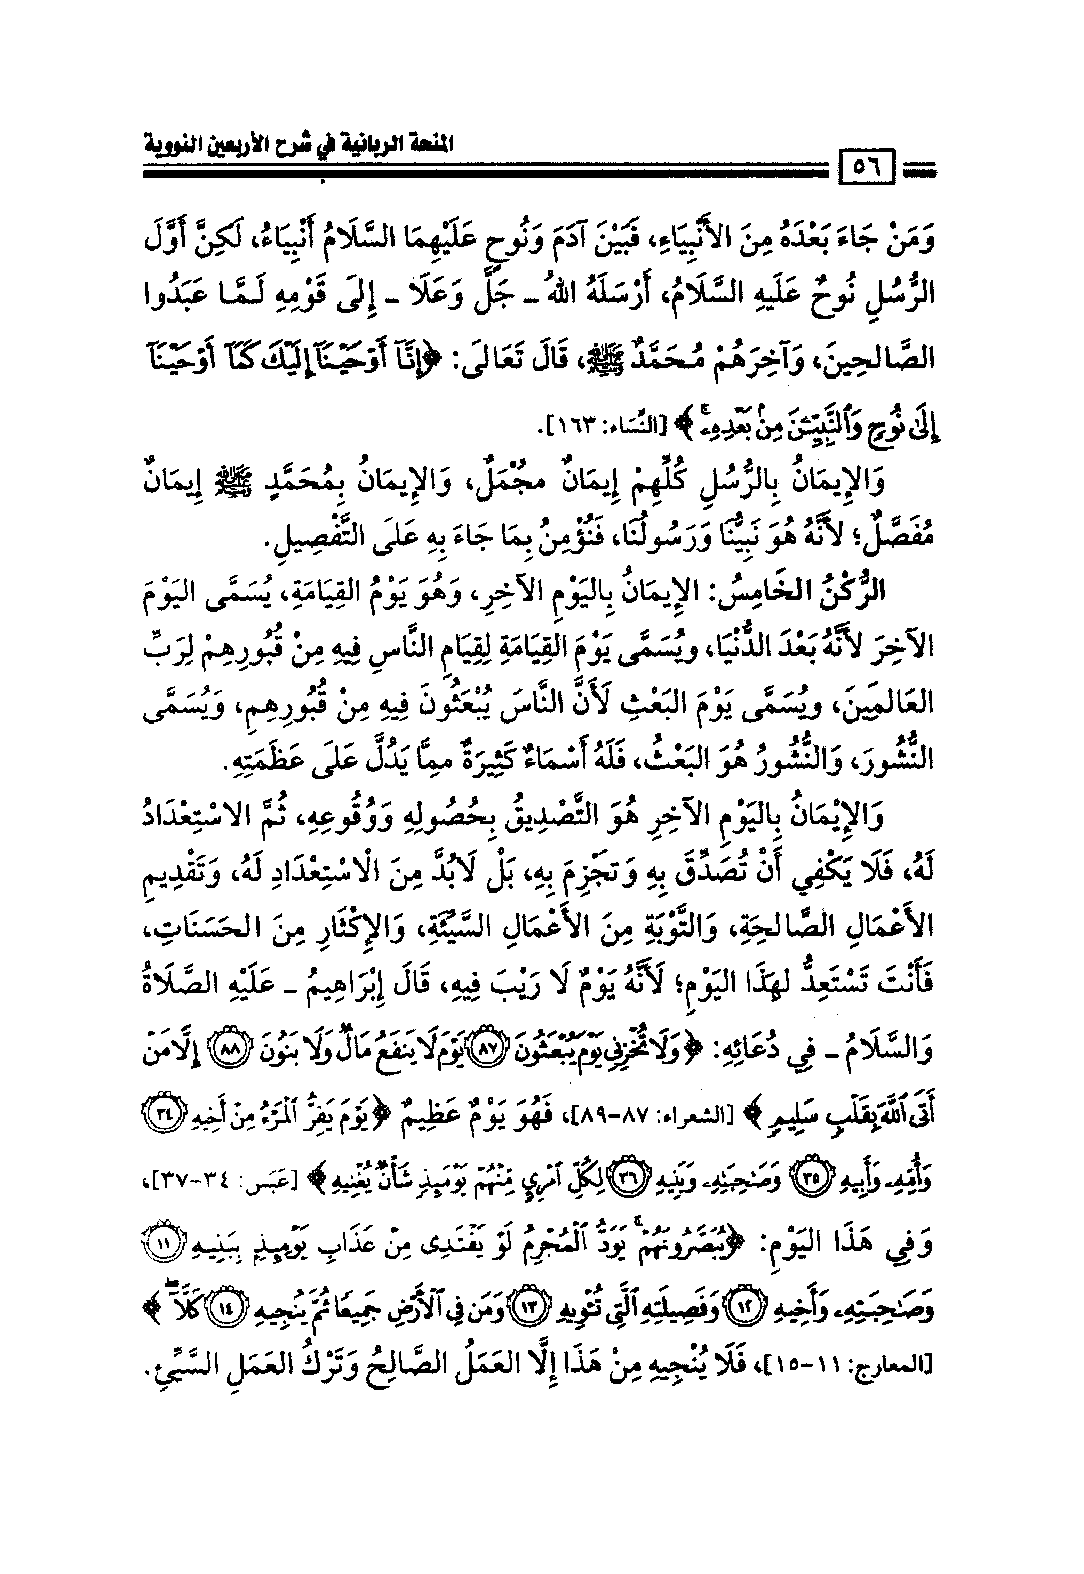 المنحة الربانية في شرح الأربعين النووية
٥٦
وَمَنْ جَاءَ بَعْدَهُ مِنَ الأَنْبِيَاءِ، فَبَيْنَ آدَمَ وَنُوحٍ عَلَيْهِمَا السَّلَامُ أَنْبِيَاءُ، لَكِنَّ أَوَّلَ
الرُّسُلِ نُوحٌ عَلَيهِ السَّلَامُ، أَرْسَلَهُ اللهُ ـ جَلَّ وَعَلَا ـ إِلَى قَوْمِهِ لَـمَّا عَبَدُوا
الصَّالِحِينَ، وَآخِرَهُمْ مُحَمَّدٌ ﷺ، قَالَ تَعَالَى: ﴿إِنَّآ أَوْحَيْنَآ إِلَيْكَ كَمَآ أَوْحَيْنَآ
إِلَىٰ نُوحٍ وَٱلنَّبِيِّـۧنَ مِنۢ بَعْدِهِۦۚ﴾ [النِّسَاء: ١٦٣].
وَالإِيمَانُ بِالرُّسُلِ كُلِّهِمْ إِيمَانٌ مجْمَلٌ، وَالإِيمَانُ بِمُحَمَّدٍ ﷺ إِيمَانٌ
مُفَصَّلٌ؛ لأَنَّهُ هُوَ نَبِيُّنَا وَرَسُولُنَا، فَنُؤْمِنُ بِمَا جَاءَ بِهِ عَلَى التَّفْصِيلِ.
الرُّكْنُ الخَامِسُ: الإِيمَانُ بِاليَوْمِ الآخِرِ، وَهُوَ يَوْمُ القِيَامَةِ، يُسَمَّى اليَوْمَ
الآخِرَ لأَنَّهُ بَعْدَ الدُّنْيَا، ويُسَمَّى يَوْمَ القِيَامَةِ لِقِيَامِ النَّاسِ فِيهِ مِنْ قُبُورِهِمْ لِرَبِّ
العَالَمِينَ، ويُسَمَّى يَوْمَ البَعْثِ لَأَنَّ النَّاسَ يُبْعَثُونَ فِيهِ مِنْ قُبُورِهِم، وَيُسَمَّى
النُّشُورَ، وَالنُّشُورُ هُوَ البَعْثُ، فَلَهُ أَسْمَاءٌ كَثِيرَةٌ ممِمَّا يَدُلَّ عَلَى عَظَمَتِهِ.
وَالإِيْمَانُ بِاليَوْمِ الآخِرِ هُوَ التَّصْدِيقُ بِحُصُولِهِ وَوُقُوعِهِ، ثُمَّ الاسْتِعْدَادُ
لَهُ، فَلَا يَكْفِي أَنْ تُصَدِّقَ بِهِ وَتجَزِمَ بِهِ، بَلْ لَابُدَّ مِنَ الْاسْتِعْدَادِ لَهُ، وَتَقْدِيمِ
الأَعْمَالِ الصَّالحِةِ، وَالتَّوْبَةِ مِنَ الأَعْمَالِ السَّيِّئَةِ، وَالإِكْثَارِ مِنَ الحَسَنَاتِ،
فَأَنْتَ تَسْتَعِدُّ لهِذَا اليَوْمِ؛ لَأَنَّهُ يَوْمٌ لَا رَيْبَ فِيهِ، قَالَ إِبْرَاهِيمُ ـ عَلَيْهِ الصَّلَاةُ
وَالسَّلَامُ ـ فِي دُعَائِهِ: ﴿وَلَا تُخْزِنِي يَوْمَ يُبْعَثُونَ ٨٧ يَوْمَ لَا يَنفَعُ مَالٌ وَلَا بَنُونَ ٨٨ إِلَّا مَنْ
أَتَى ٱللَّهَ بِقَلْبٍ سَلِيمٍ﴾ [الشعراء: ٨٧-٨٩]، فَهُوَ يَوْمٌ عَظِيمٌ ﴿يَوْمَ يَفِرُّ ٱلْمَرْءُ مِنْ أَخِيهِ ٣٤
وَأُمِّهِۦ وَأَبِيهِ ٣٥ وَصَٰحِبَتِهِۦ وَبَنِيهِ ٣٦ لِكُلِّ ٱمْرِئٍ مِّنْهُمْ يَوْمَئِذٍ شَأْنٌ يُغْنِيهِ﴾ [عَبَس: ٣٤-٣٧]،
وَفِي هَذَا اليَوْمِ: ﴿يُبَصَّرُونَهُمْۚ يَوَدُّ ٱلْمُجْرِمُ لَوْ يَفْتَدِى مِنْ عَذَابِ يَوْمِئِذٍۭ بِبَنِيهِ ١١
وَصَٰحِبَتِهِۦ وَأَخِيهِ ١٢ وَفَصِيلَتِهِ ٱلَّتِي تُـْٔوِيهِ ١٣ وَمَن فِي ٱلْأَرْضِ جَمِيعًا ثُمَّ يُنجِيهِ ١٤ كَلَّآۖ﴾
[المعارج: ١١-١٥]، فَلَا يُنْجِيهِ مِنْ هَذَا إِلَّا العَمَلُ الصَّالِحُ وَتَرْكُ العَمَلِ السَّيِّئِ.